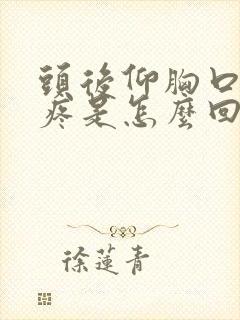 頭後仰胸口
疼是怎麼回
徐蓮青